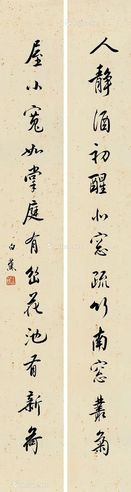 人靜酒初醒北窗疏竹南窗叢菊
屋小寬如掌庭有幽花池有新荷
白蕉